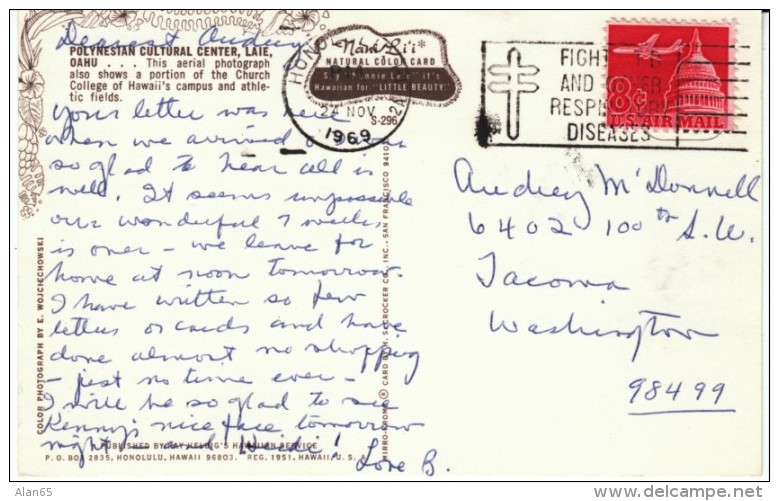 Dearest Audrey
POLYNESIAN CULTURAL CENTER, LAIE,
OAHU . . . This aerial photograph
also shows a portion of the Church
College of Hawaii's campus and athle-
tic fields.
Nani Li'i*
NATURAL COLOR CARD
Say "Nannie Lee" it's
Hawaiian for "LITTLE BEAUTY"
S-296
HONO
NOV
1969
FIGHT
AND
RESPIRATORY
DISEASES
8¢
U.S. AIR MAIL
your letter was here
when we arrived
so glad to hear all is
well. It seems impossible
our wonderful 7 weeks
is over – we leave for
home at noon tomorrow.
I have written so few
letters or cards and have
done almost no shopping
– just no time ever –
I will be so glad to see
Kenny's nice face tomorrow
night – and Heidi!
Love B.
Audrey McDonnell
6402 100th S.W.
Tacoma
Washington
98499
COLOR PHOTOGRAPH BY E. WOJCIECHOWSKI
MIRRO-KROME® CARD BY H. S. CROCKER CO., INC., SAN FRANCISCO 9410
PUBLISHED BY RAY HELBIG'S HAWAIIAN SERVICE
P. O. BOX 2835, HONOLULU, HAWAII 96803. REG. 1951, HAWAII, U. S. A.
Alan65
http://www.delcampe.net